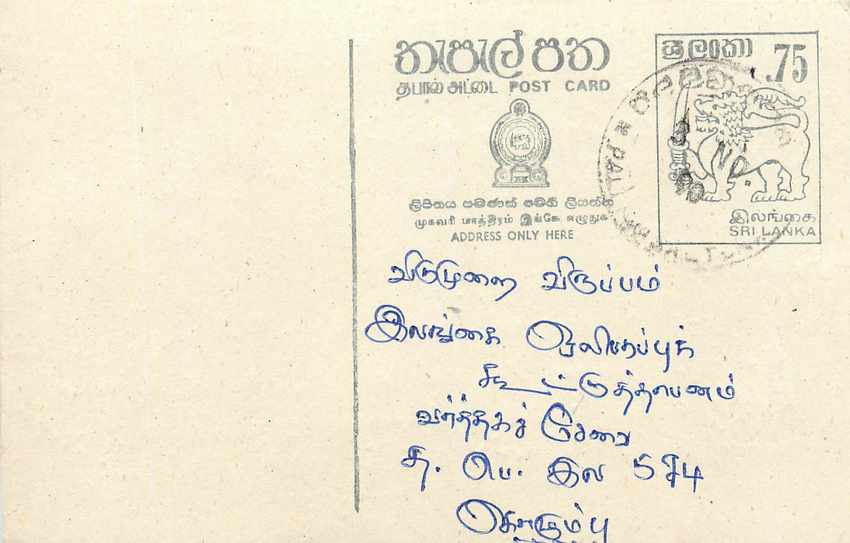 තැපැල් පත
தபால் அட்டை POST CARD
ශ්‍රී ලංකා .75
ලිපිනය පමණක් මෙහි ලියන්න
முகவரி மாத்திரம் இங்கே எழுதுக
ADDRESS ONLY HERE
இலங்கை
SRI LANKA
விருப்பம்
இலங்கை ஒலிபரப்புக்
கூட்டுத்தாபனம்
வர்த்தகச் சேவை
த. பெ. இல 574
கொழும்பு